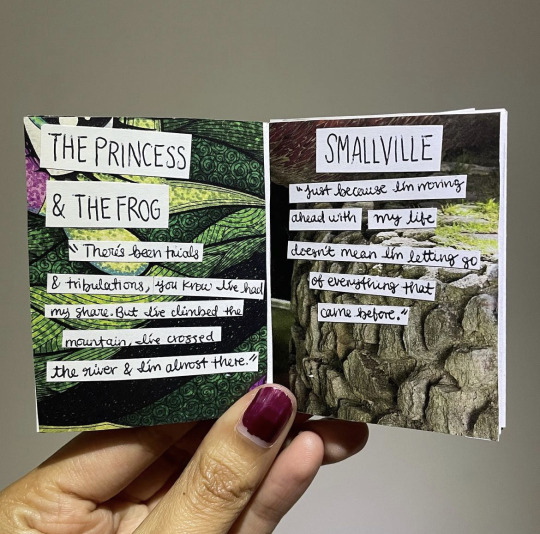 THE PRINCESS
& THE FROG
"There's been trials
& tribulations, you know I've had
my share. But I've climbed the
mountain, I've crossed
the river & I'm almost there."
SMALLVILLE
"Just because I'm moving
ahead with my life
doesn't mean I'm letting go
of everything that
came before."